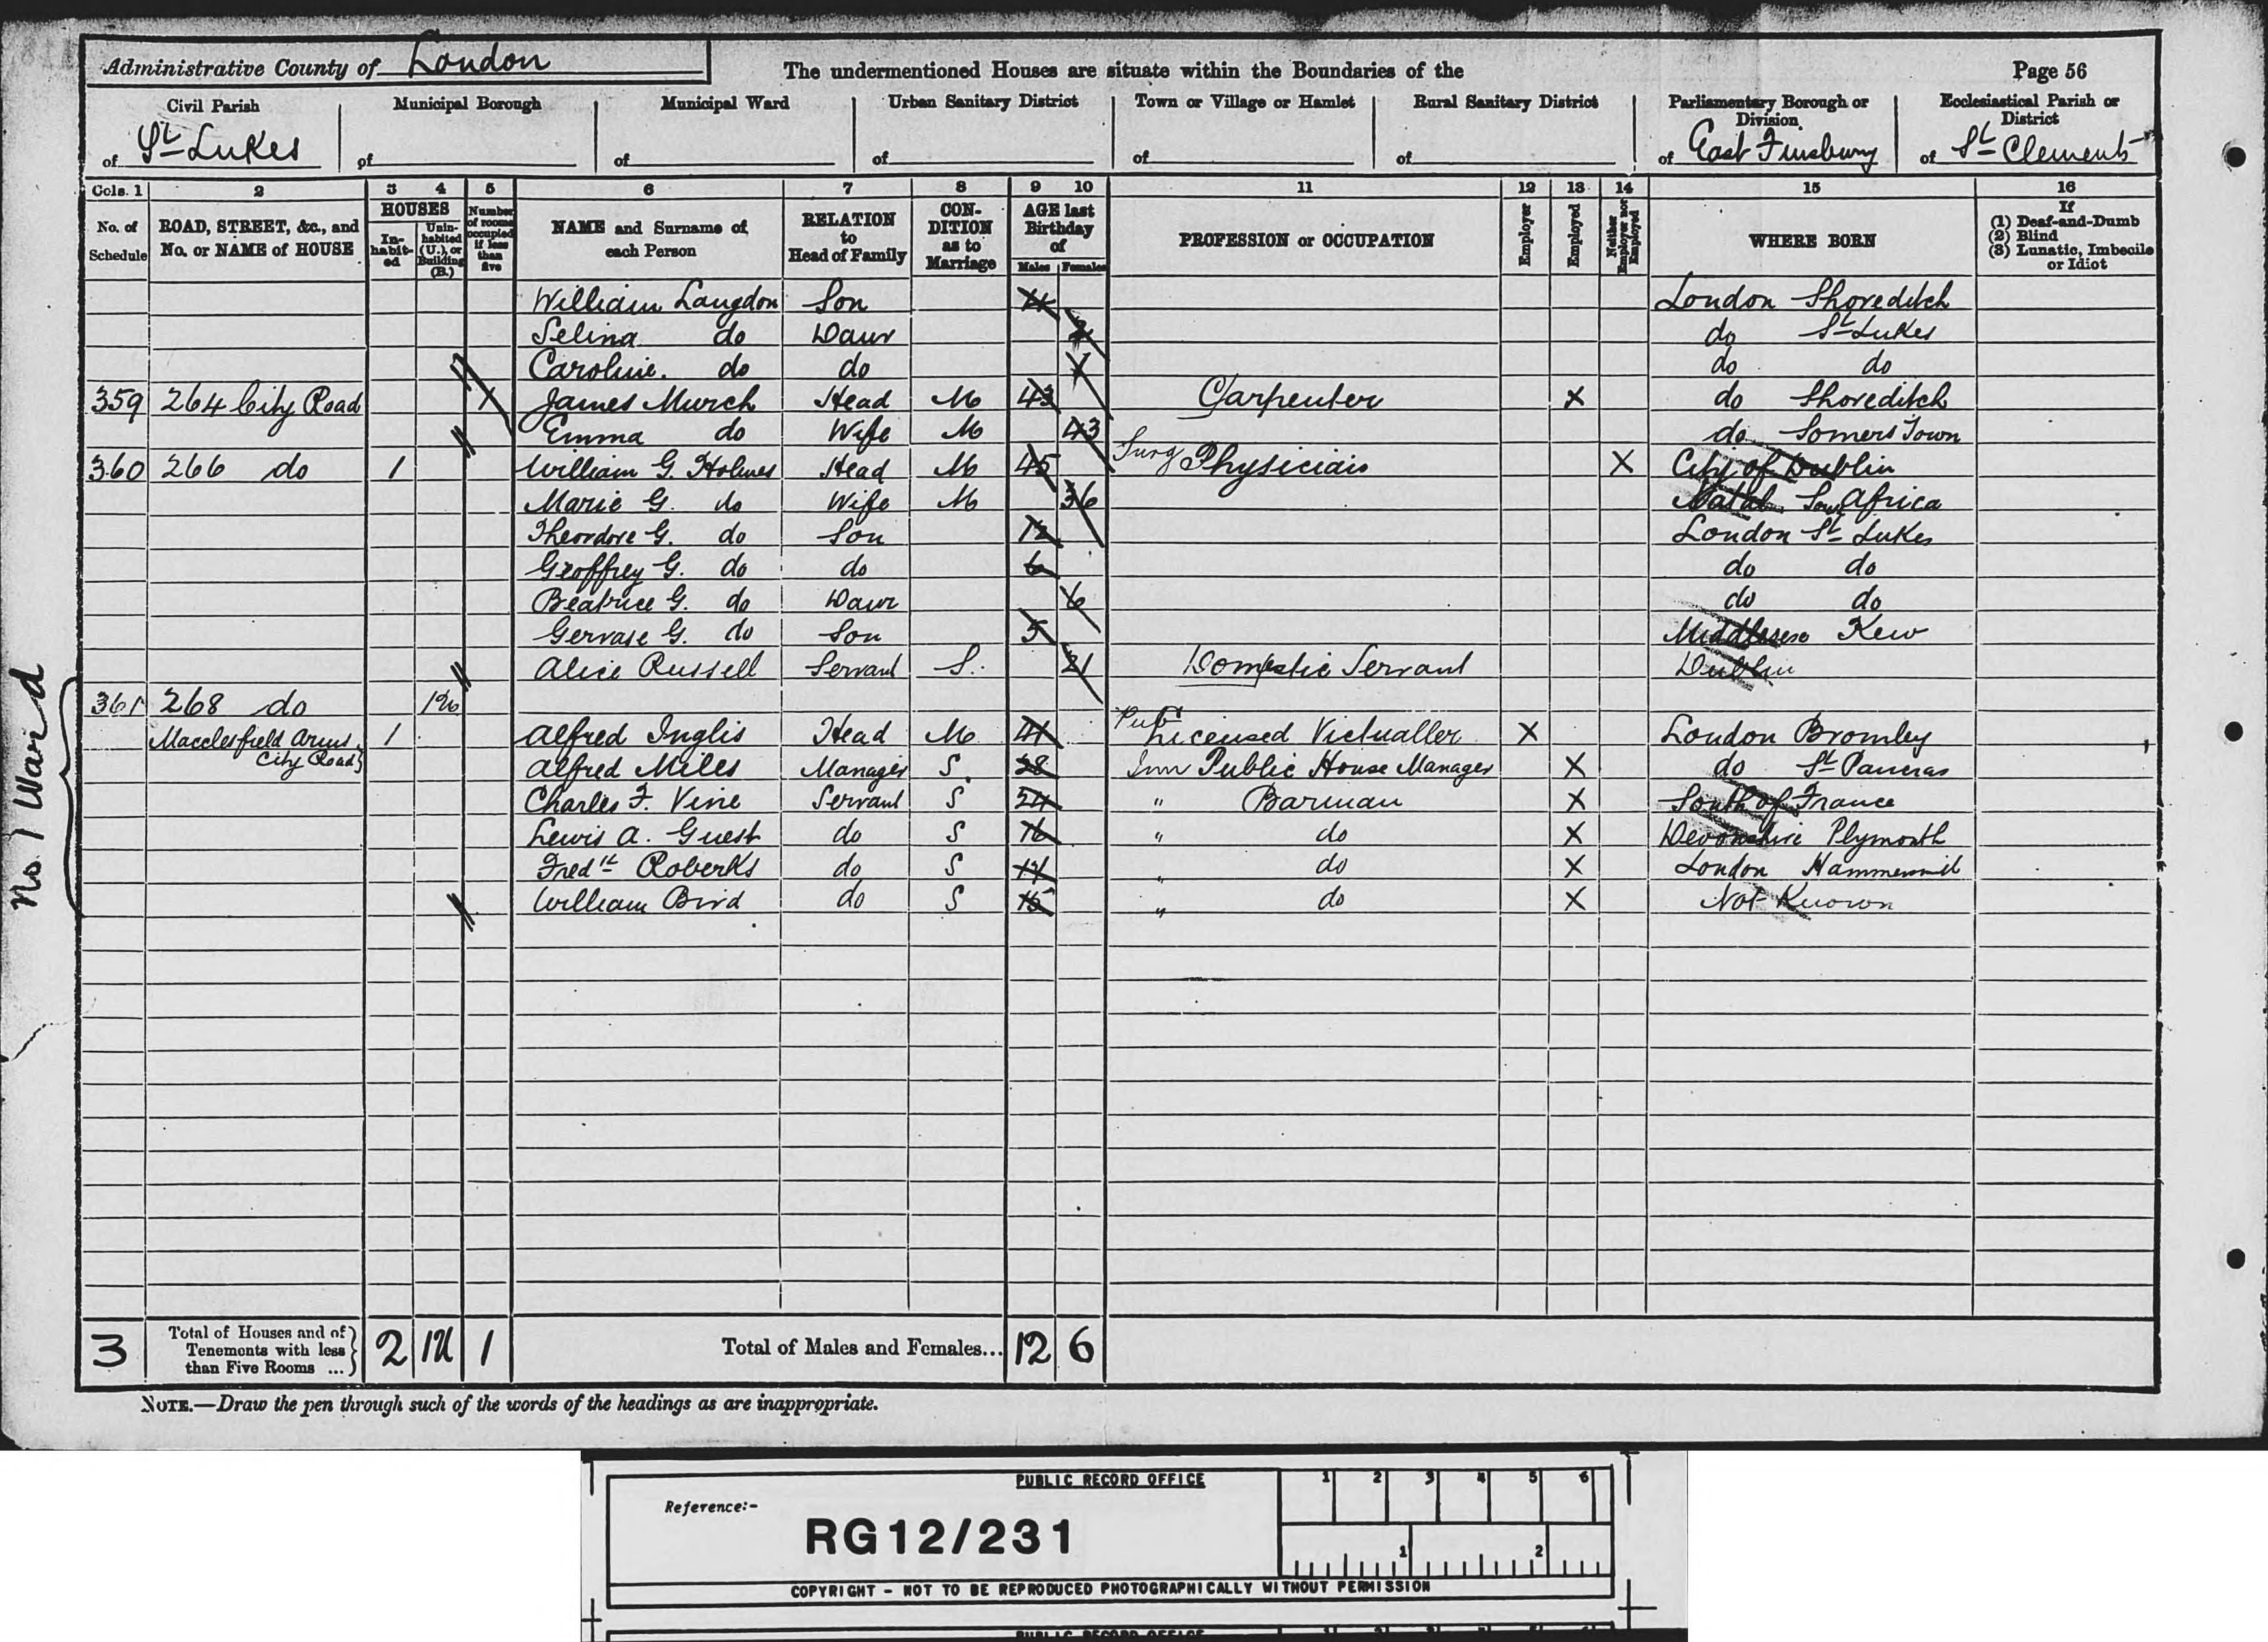 Administrative County of London
The undermentioned Houses are situate within the Boundaries of the
Page 56
Civil Parish of St Lukes
Municipal Borough of
Municipal Ward of
Urban Sanitary District of
Town or Village or Hamlet of
Rural Sanitary District of
Parliamentary Borough or Division of East Finsbury
Ecclesiastical Parish or District of St Clements
Cols. 1 2 3 4 5 6 7 8 9 10 11 12 13 14 15 16
No. of Schedule
ROAD, STREET, &c., and No. or NAME of HOUSE
HOUSES
In-habit-ed
Unin-habited (U.), or Building (B.)
Number of rooms occupied if less than five
NAME and Surname of each Person
RELATION to Head of Family
CON-DITION as to Marriage
AGE last Birthday of
Males Females
PROFESSION or OCCUPATION
Employer
Employed
Neither Employer nor Employed
WHERE BORN
If (1) Deaf-and-Dumb (2) Blind (3) Lunatic, Imbecile or Idiot
William Langdon Son 4 London Shoreditch
Selina do Daur do St Lukes
Caroline do do do do
359 264 City Road James Murch Head M 43 Carpenter X do Shoreditch
Emma do Wife M 43 do Somers Town
360 266 do 1 William G. Holmes Head M 45 Surg Physician X City of Dublin
Marie G. do Wife M 36 Natal Sou Africa
Theordore G. do Son 12 London St Lukes
Geoffrey G. do do 6 do do
Beatrice G. do Daur 6 do do
Gervase G. do Son 5 Middlesex Kew
Alice Russell Servant S. 21 Domestic Servant Dublin
361 268 do
Macclesfield Arms City Road 1 Alfred Inglis Head M 41 Pub Licensed Victualler X London Bromley
Alfred Miles Manager S 28 Inn Public House Manager X do St Pancras
Charles F. Vine Servant S 24 " Barman X South of France
Lewis A. Guest do S 16 " do X Devonshire Plymouth
Fredk Roberts do S 17 " do X London Hammersmith
William Bird do S 15 " do X Not Known
No. 1 Ward
3 Total of Houses and of Tenements with less than Five Rooms ... 2 1U 1 Total of Males and Females... 12 6
NOTE.—Draw the pen through such of the words of the headings as are inappropriate.
PUBLIC RECORD OFFICE
1 2 3 4 5 6
Reference:-
RG12/231
1 2
COPYRIGHT - NOT TO BE REPRODUCED PHOTOGRAPHICALLY WITHOUT PERMISSION
PUBLIC RECORD OFFICE